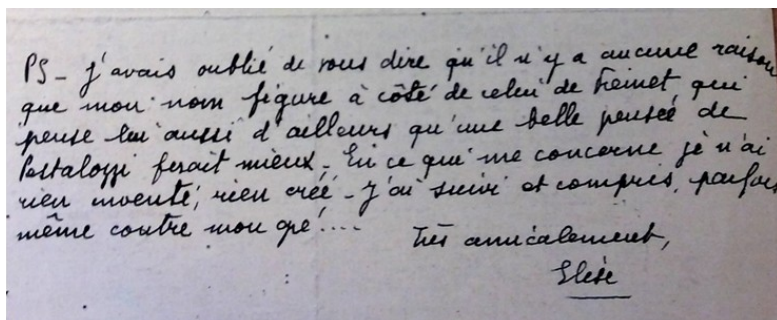 PS - J'avais oublié de vous dire qu'il n'y a aucune raison
que mon nom figure à côté de celui de Freinet, qui
pense lui aussi d'ailleurs qu'une belle pensée de
Pestalozzi ferait mieux. En ce qui me concerne je n'ai
rien inventé, rien créé - J'ai suivi et compris, parfois
même contre mon gré !....
Très amicalement,
Elise